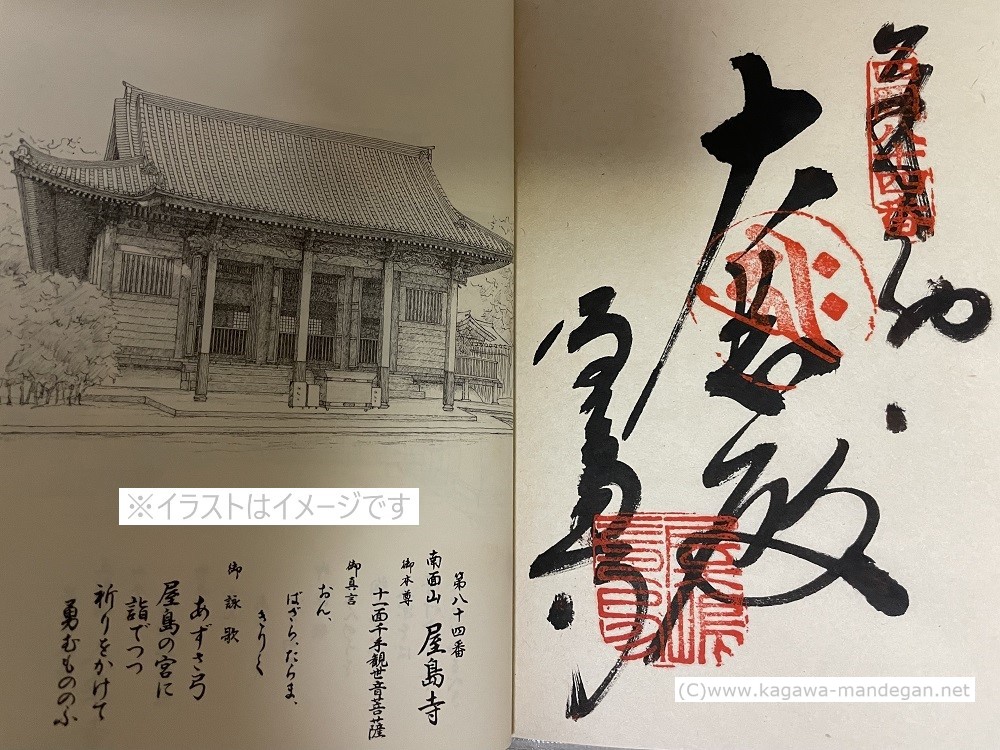 奉納
四国八十四番
大悲殿
屋島寺
第八十四番
南面山 屋島寺
御本尊
十一面千手観世音菩薩
御真言
おん、
ばざら、たらま、
きりく
御詠歌
あずさ弓
屋島の宮に
詣でつつ
祈りをかけて
勇むもののふ
※イラストはイメージです
(C)www.kagawa-mandegan.net